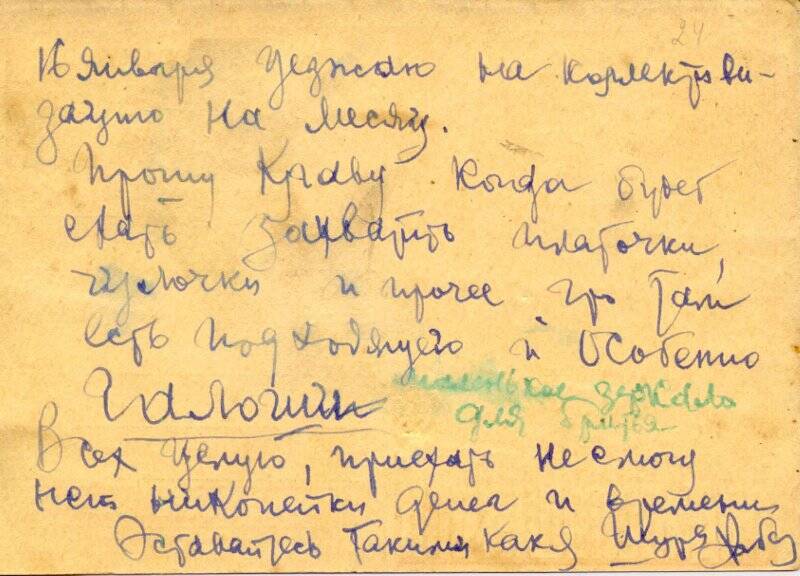 24
16 января уеджаю на коллективи-
зацию на месяц.
Прошу Клаву когда будет
ехать захватить платочки,
чулочки и прочее что там
есть подходящего и особенно
Галоши маленькое зеркало
для бритья
Всех целую, приехать не смогу
нет ни копейки денег и времени
Оставайтесь такими как я Шура